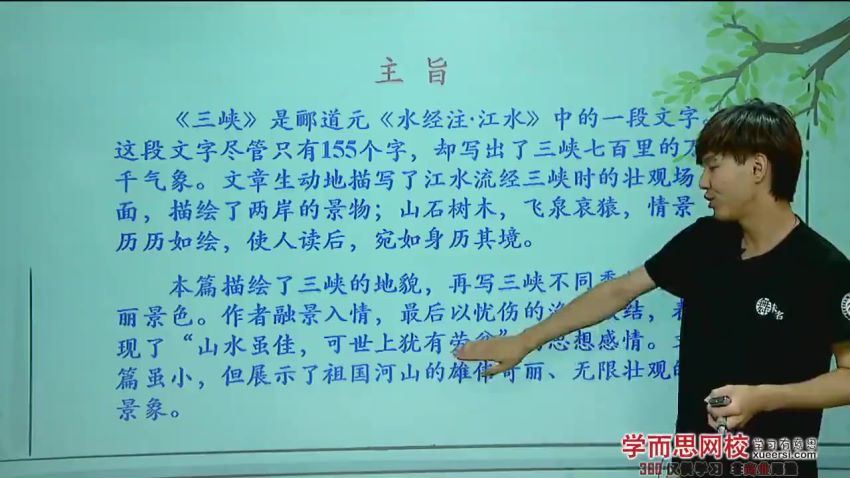 主 旨
《三峡》是郦道元《水经注·江水》中的一段文字。
这段文字尽管只有155个字，却写出了三峡七百里的万
千气象。文章生动地描写了江水流经三峡时的壮观场
面，描绘了两岸的景物；山石树木，飞泉哀猿，情景
历历如绘，使人读后，宛如身历其境。
本篇描绘了三峡的地貌，再写三峡不同季
丽景色。作者融景入情，最后以忧伤的渔 结，表
现了“山水虽佳，可世上犹有劳 思想感情。
篇虽小，但展示了祖国河山的雄伟奇丽、无限壮观的
景象。
学而思网校 学习有意思
xueersi.com
仅供学习